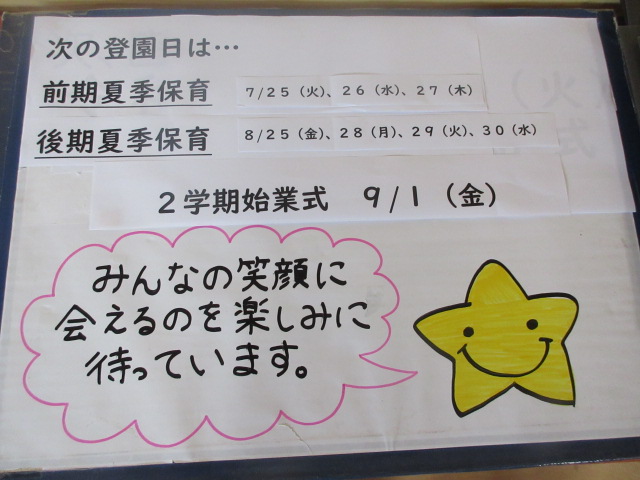 次の登園日は…
前期夏季保育　7/25（火）、26（水）、27（木）
後期夏季保育　8/25（金）、28（月）、29（火）、30（水）
２学期始業式　９/１（金）
みんなの笑顔に
会えるのを楽しみに
待っています。